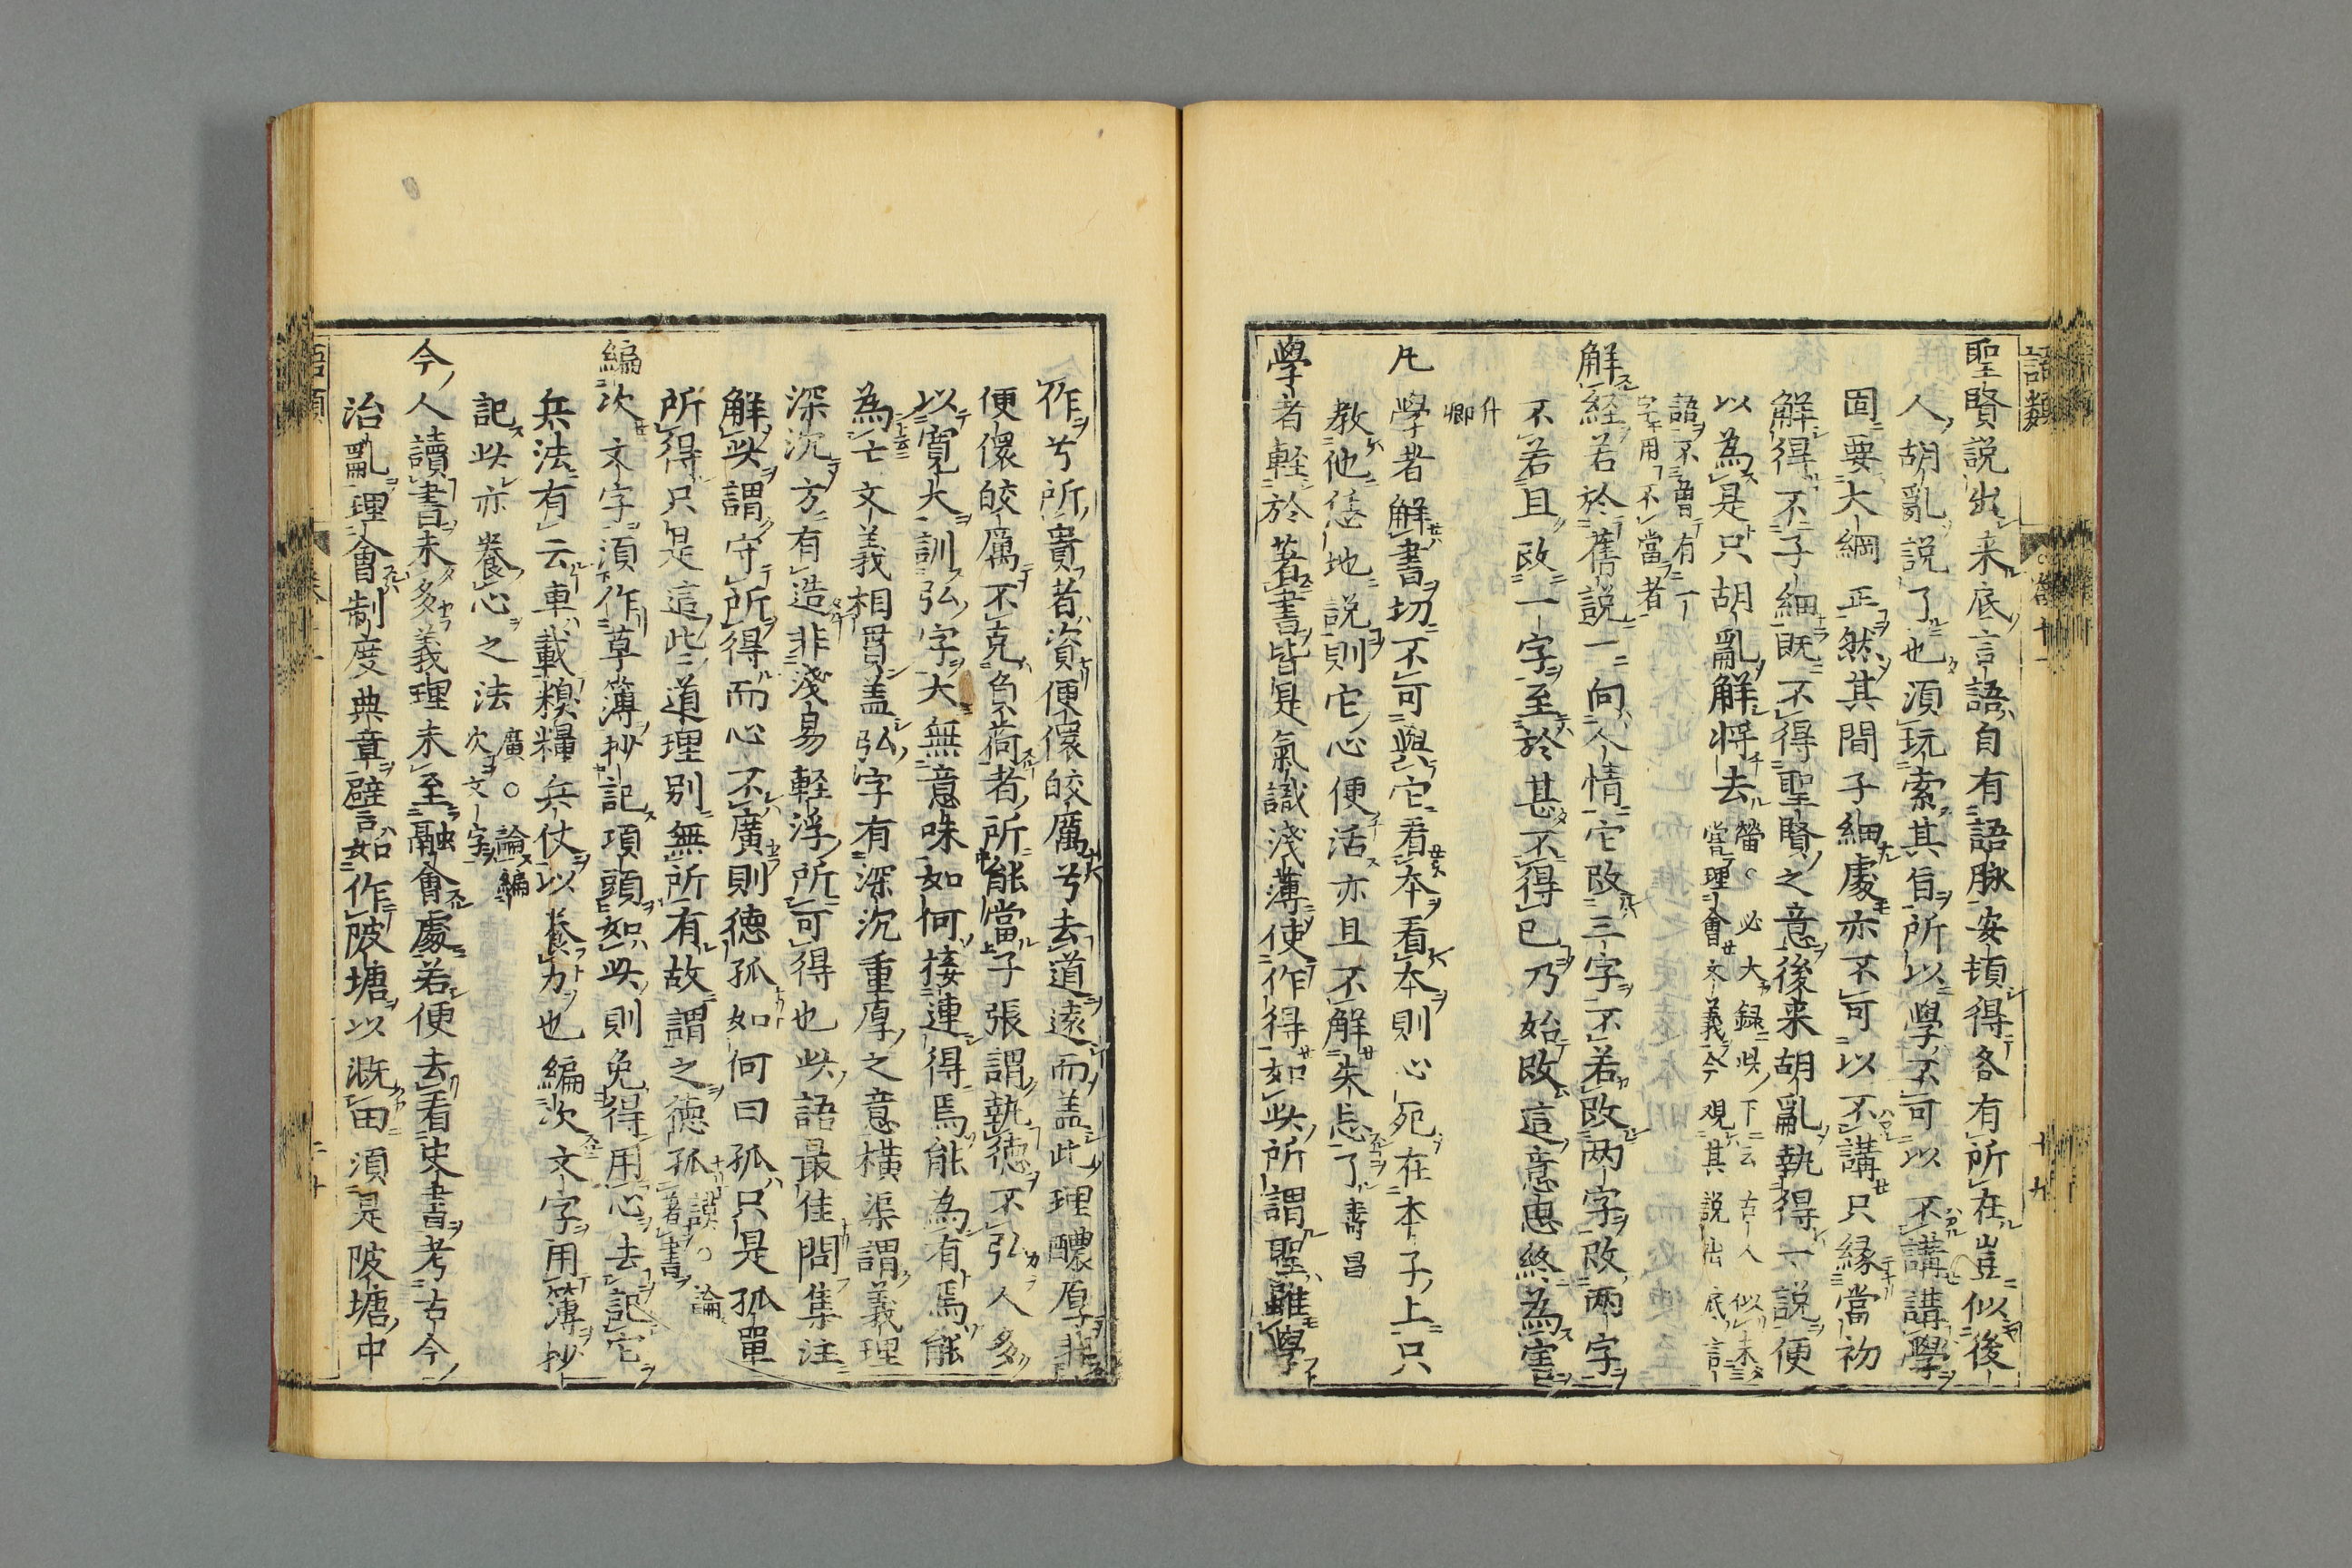 語類
卷十一
十九
聖賢說出来底言語自有語脉安頓得各有所在豈似後
人胡亂說了也須玩索其旨所以學不可以不講講學
固要大綱正然其間子細處亦不可以不講只緣當初
解得不子細既不得聖賢之意後来胡亂執得一說便
以為是只胡亂解將去㽦○必大録此下云古人似未
嘗理會文義今觀其說出底言
語不曾有一
字用不當者
解経若於舊說一向人情它改三字不若改两字改兩字
不若且改一字至於甚不得已乃始改這意思終為害
升
卿
凡學者解書切不可與它看本看本則心死在本子上只
教他恁地說則它心便活亦且不解失忘了壽昌
學者輕於著書皆是氣識淺薄使作得如此所謂聖雖學
作兮所貴者資便儇皎厲兮去道遠而蓋此理醲厚非
便儇皎厲不克負荷者所能當子張謂執徳不弘人多
以寬大訓弘字大無意味如何接連得焉能為有焉能
為亡文義相貫盖弘字有深沉重厚之意横渠謂義理
深沉方有造非淺易輕浮所可得也此語最佳問集注
解此謂守所得而心不廣則徳孤如何曰孤只是孤單
所得只是這些道理別無所有故謂之徳孤謨○論
著書
編次文字須作草簿抄記項頭如此則免得用心去記它
兵法有云車載糗糧兵仗以養力也編次文字用簿抄
記此亦養心之法廣○論編
次文字
今人讀書未多義理未至融會處若便去看史書考古今
治亂理會制度典章譬如作陂塘以溉田須是陂塘中
語類